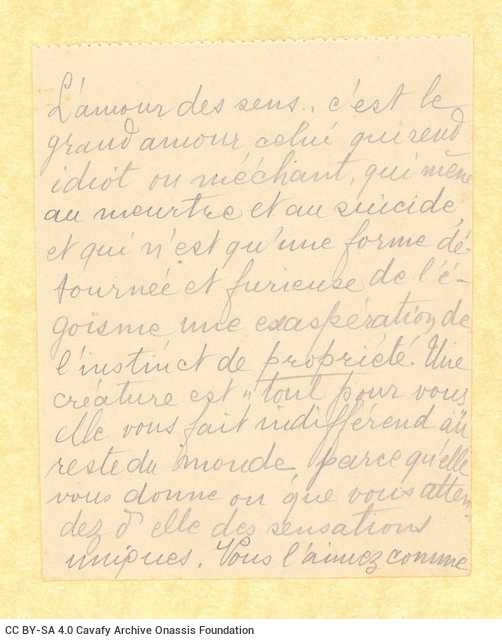 L'amour des sens., c'est le
grand amour celui qui rend
idiot ou méchant, qui mène
au meurtre et au suicide,
et qui n'est qu'une forme dé-
tournée et furieuse de l'é-
goïsme, une exaspération de
l'instinct de propriété. Une
créature est "tout pour vous
elle vous fait indifférend au
reste du monde, parce qu'elle
vous donne ou que vous atten-
dez d'elle des sensations
uniques. Vous l'aimez comme
CC BY-SA 4.0 Cavafy Archive Onassis Foundation